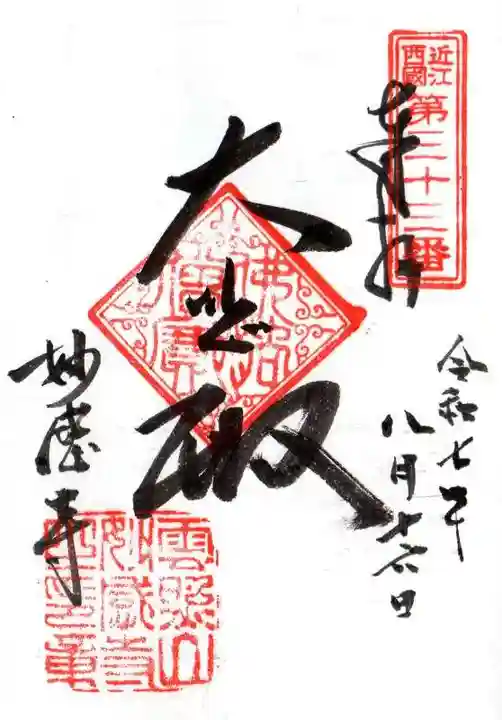 近江西國
第三十三番
奉拝
令和七年
八月十六日
大悲殿
妙感寺
雲照山妙感寺